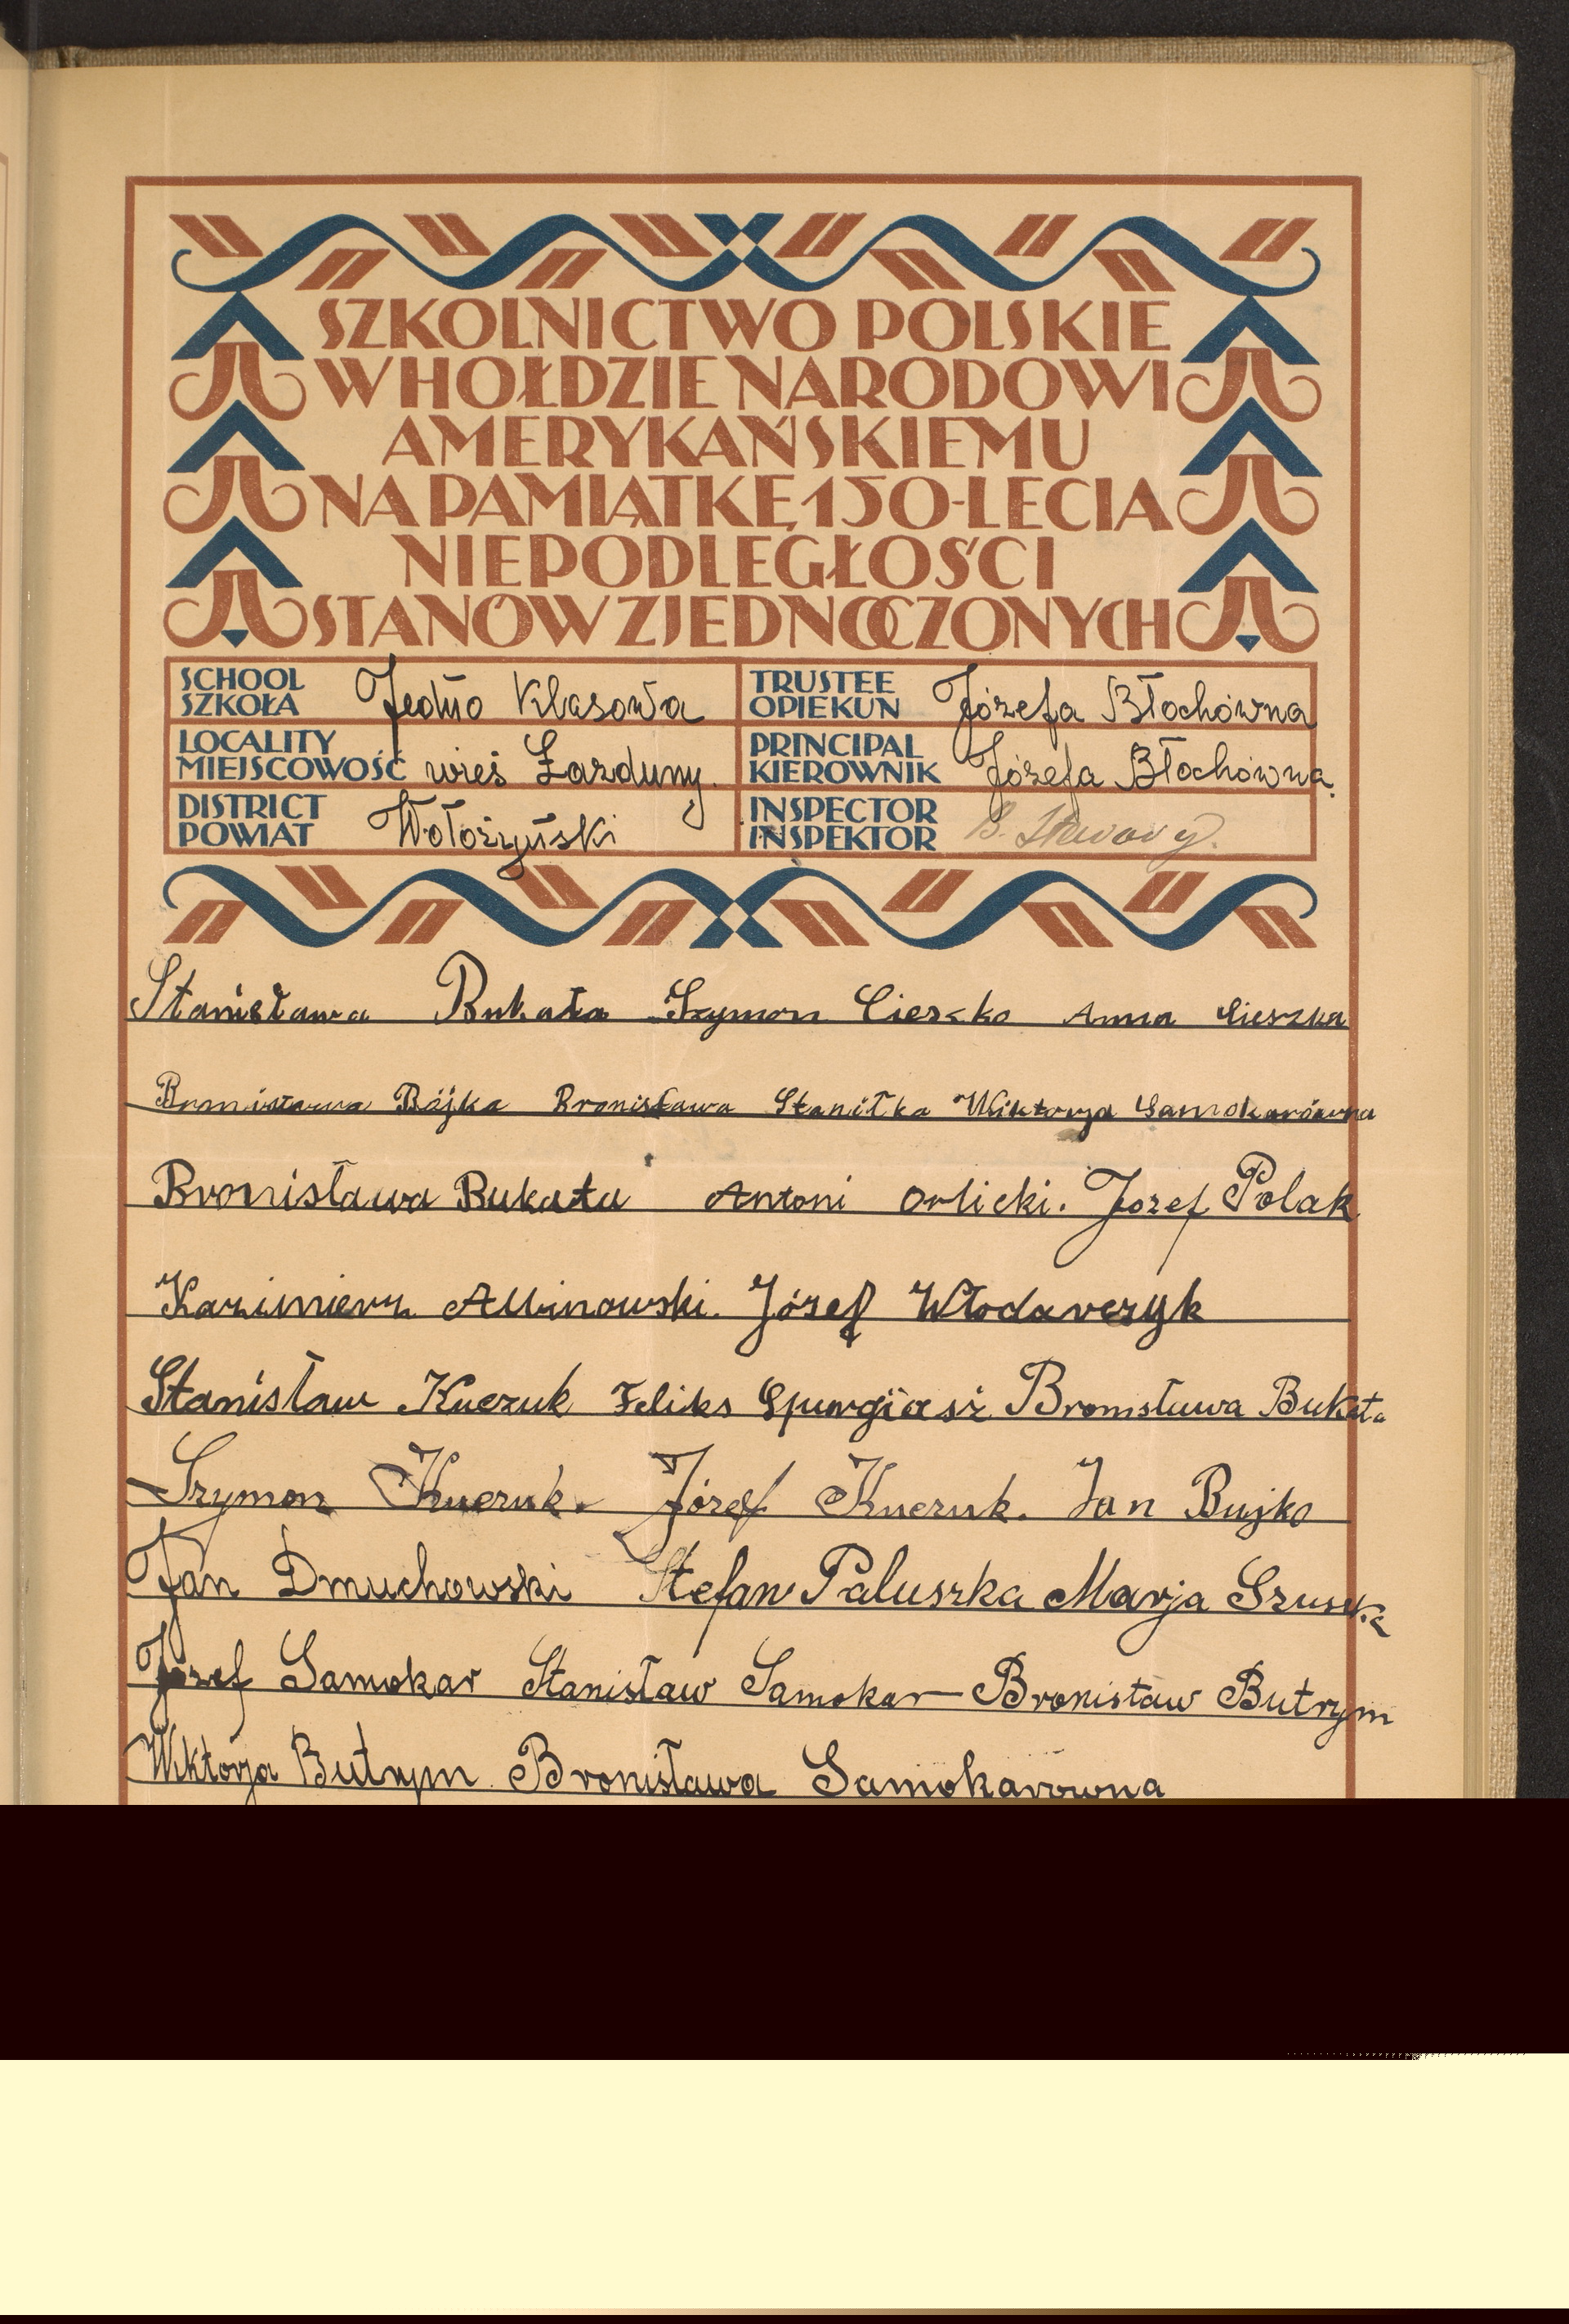 SZKOLNICTWO POLSKIE
W HOŁDZIE NARODOWI
AMERYKAŃSKIEMU
NA PAMIĄTKĘ 150-LECIA
NIEPODLEGŁOŚCI
STANÓW ZJEDNOCZONYCH
SCHOOL SZKOŁA Jedno Klasowa
TRUSTEE OPIEKUN Józefa Błochówna
LOCALITY MIEJSCOWOŚĆ wieś Łazduny.
PRINCIPAL KIEROWNIK Józefa Błochówna.
DISTRICT POWIAT Wołożyński
INSPECTOR INSPEKTOR B.
Stanisława Bukata Szymon Cieszko Anna Cieszka
Bronisława Bójka Bronisława Staniłka Wiktorja Samokarówna
Bronisława Bukata Antoni Orlicki. Józef Polak
Kazimierz Albinowski. Józef Włodarczyk
Stanisław Kuczuk Feliks Bronisława Bukata
Szymon Kuczuk. Józef Kuczuk. Jan Bujko
Jan Dmuchowski Stefan Paluszka Marja
Józef Samokar Stanisław Samokar Bronisław Butrym
Wiktorja Butrym Bronisława Samokarowna